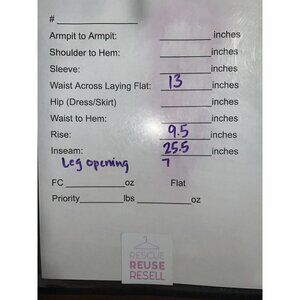 # ____________
Armpit to Armpit: ____________ inches
Shoulder to Hem: ____________ inches
Sleeve: ____________ inches
Waist Across Laying Flat: 13 inches
Hip (Dress/Skirt) ____________ inches
Waist to Hem: ____________ inches
Rise: 9.5 inches
Inseam: 25.5 inches
Leg opening 7
FC ____________ oz Flat
Priority ________ lbs ________ oz
RESCUE
REUSE
RESELL